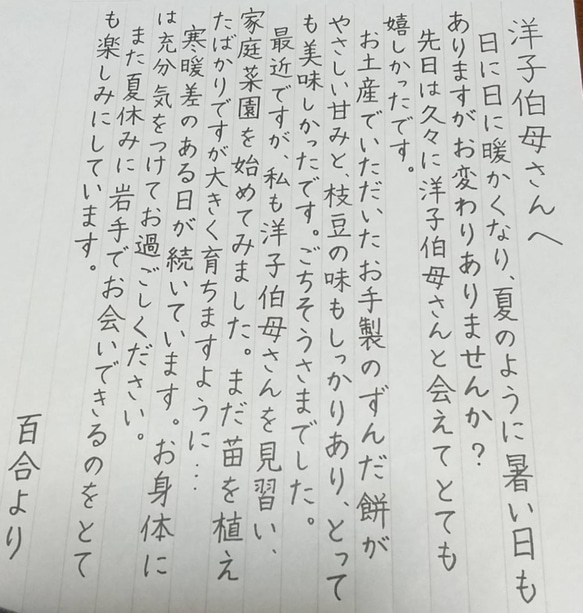 洋子伯母さんへ
日に日に暖かくなり、夏のように暑い日も
ありますがお変わりありませんか？
先日は久々に洋子伯母さんと会えてとても
嬉しかったです。
お土産でいただいたお手製のずんだ餅が
やさしい甘みと、枝豆の味もしっかりあり、とって
も美味しかったです。ごちそうさまでした。
最近ですが、私も洋子伯母さんを見習い、
家庭菜園を始めてみました。まだ苗を植え
たばかりですが大きく育ちますように…
寒暖差のある日が続いています。お身体に
は充分気をつけてお過ごしください。
また夏休みに岩手でお会いできるのをとて
も楽しみにしています。
百合より